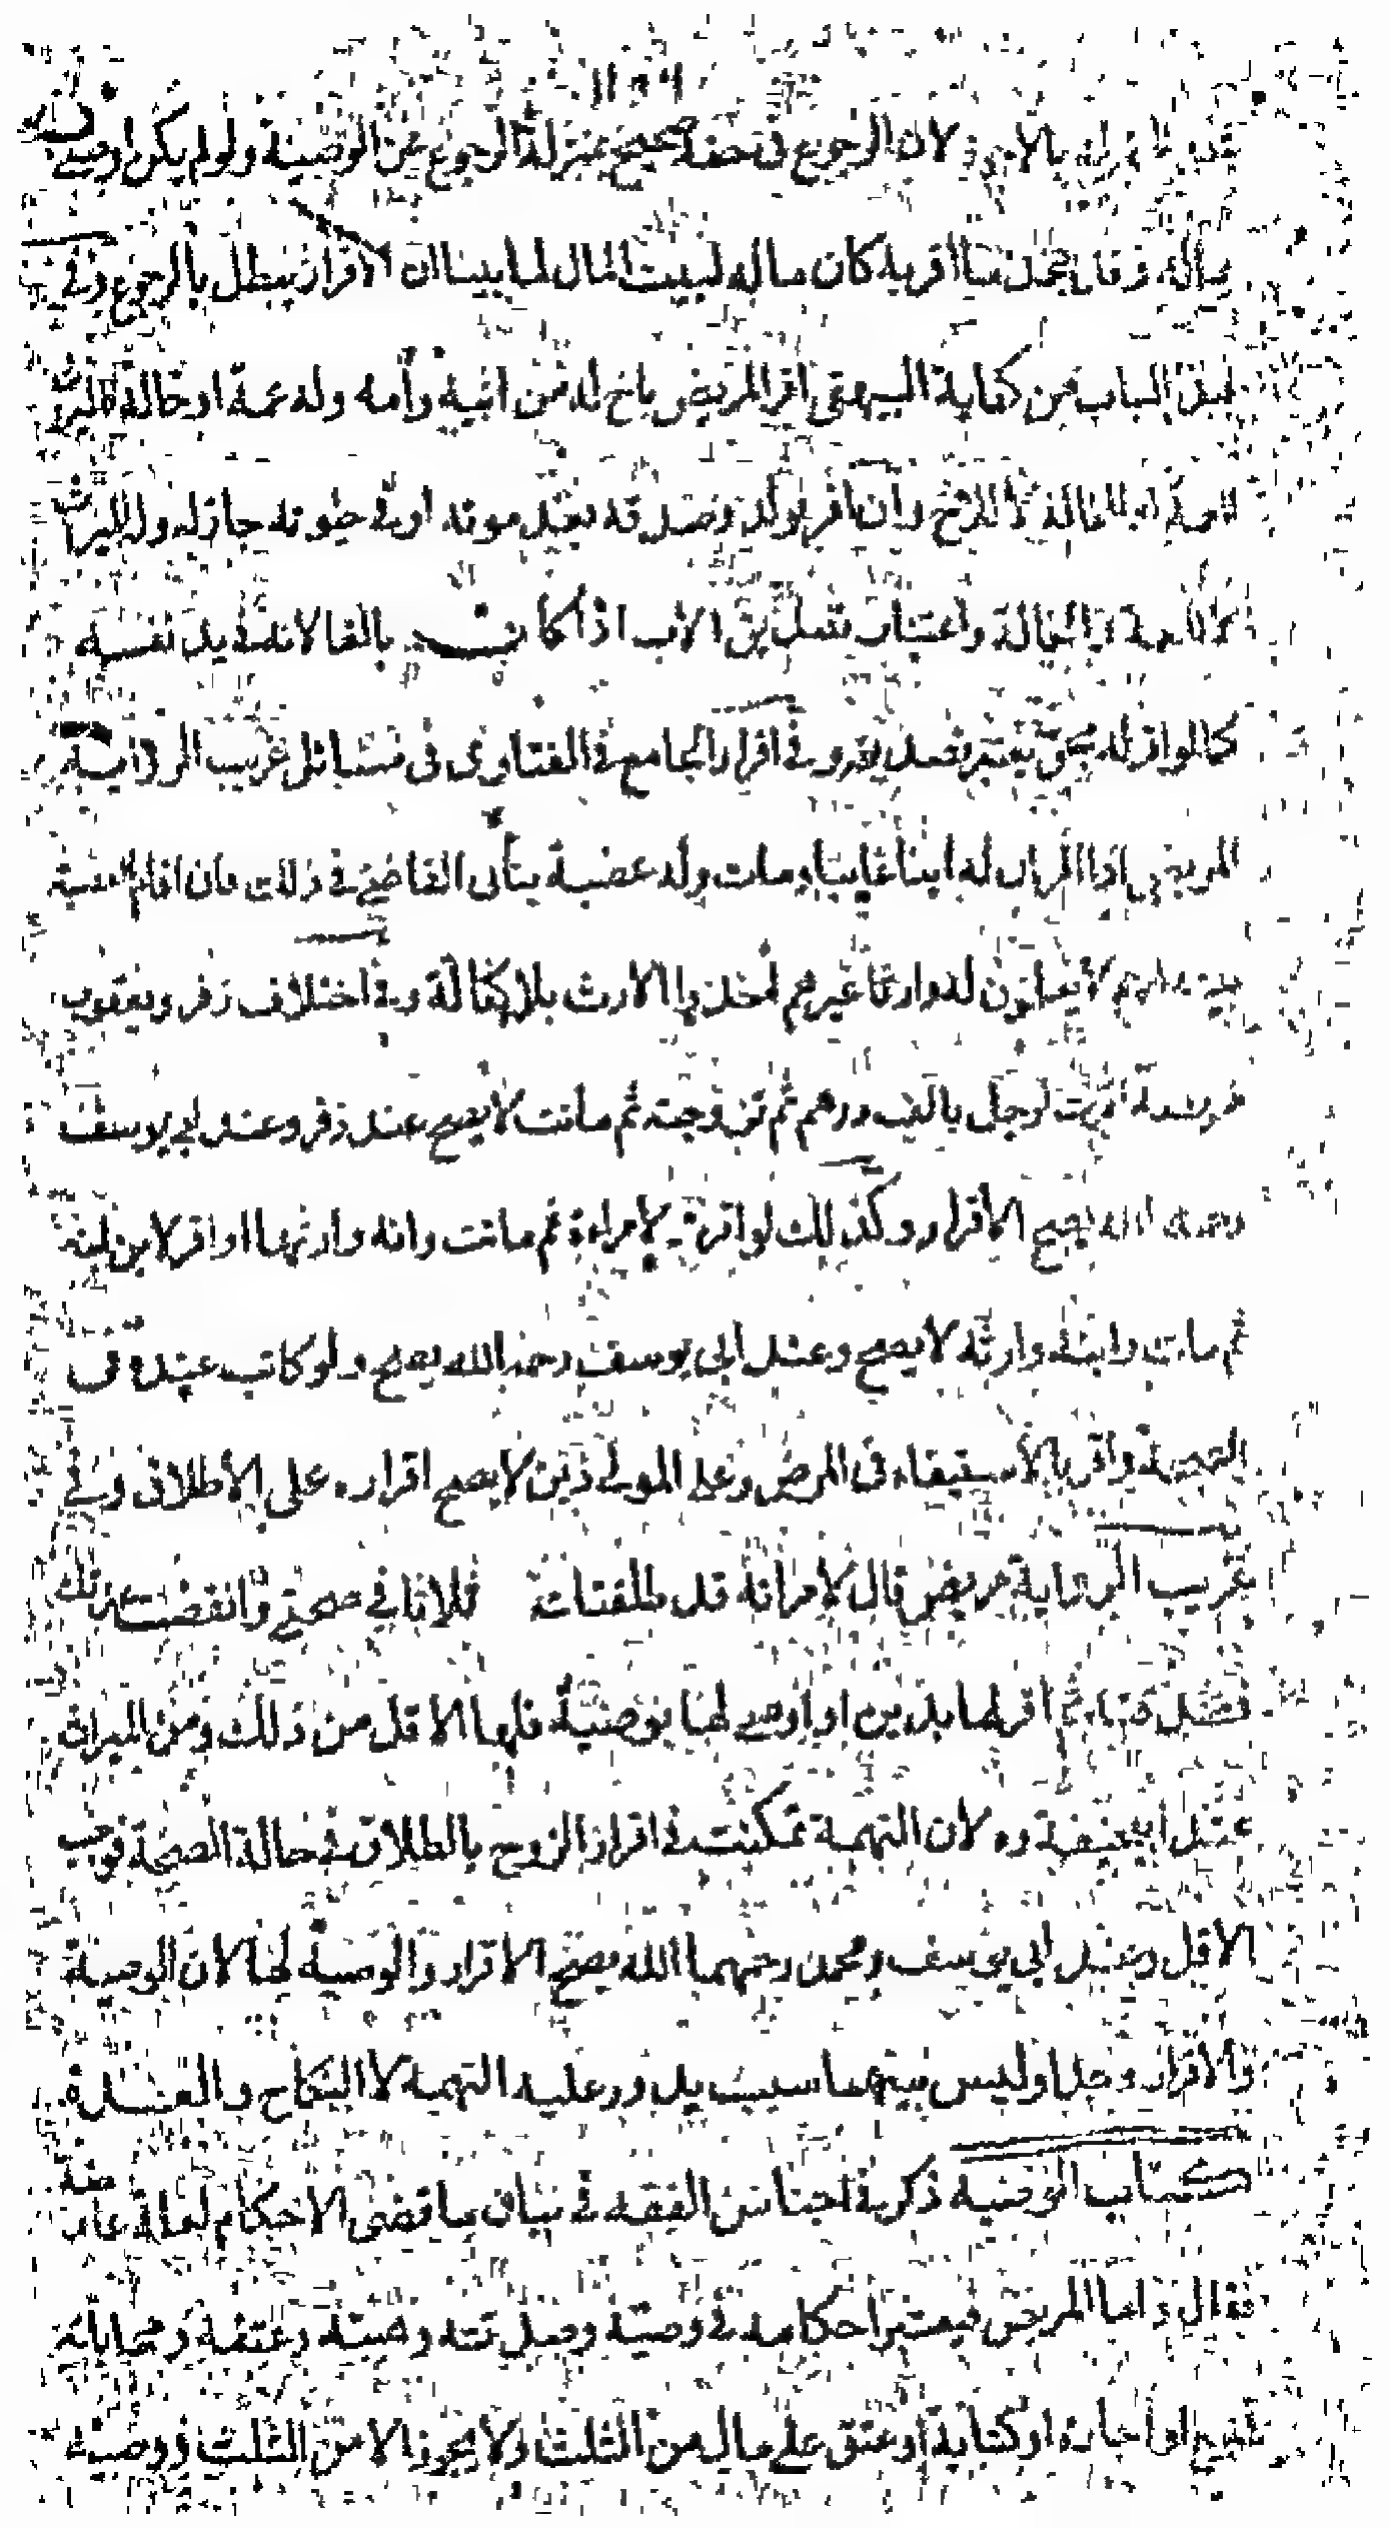 لان الرجوع في حقه صحيح بمنزلة الرجوع عن الوصية ولو لم يكن اوصى
ماله وقال جميع ما اقر به كان ماله لبيت المال لما بينا ان الاقرار يبطل بالرجوع وفي
هذا الباب من كفاية البيهقي اقر المريض باخ له من ابيه وامه وله عمة او خالة فالميراث
للعمة او الخالة لا للاخ وان اقر بولد وصدقه بعد موته او في حيوته جاز له وله الميراث
لا للعمة والخالة واعتبار تصديق الابن اذا كان بالغا لانه في يد نفسه
كما لو اقر له بحق يعتبر تصديقه وفي اقرار الجامع في الفتاوى في مسائل غريب الرواية
المريض اذا اقر ان له ابنا غايبا ومات وله عصبة يتأنى القاضي في ذلك فان اقام العصبة
بينة انهم لا يعلمون له وارثا غيرهم اخذوا الارث بلا كفالة وفي اختلاف زفر ويعقوب
مريضة اقرت لرجل بالف درهم ثم تزوجته ثم ماتت لا يصح عند زفر وعند ابي يوسف
رحمه الله يصح الاقرار وكذلك لو اقرت لامراءة ثم ماتت وانه وارثها او اقر لابن ابنه
ثم مات وابنه وارثه لا يصح وعند ابي يوسف رحمه الله يصح ولو كاتب عبده في
الصحة واقر بالاستيفاء في المرض وعلى المولى دين لا يصح اقراره على الاطلاق وفي
غريب الرواية مريض قال لامراته قد طلقتك ثلاثا في صحتي وانقضت عدتك
فصدقته ثم اقر لها بدين او اوصى لها بوصية فلها الاقل من ذلك ومن الميراث
عند ابيحنيفة ره لان التهمة تمكنت في اقرار الزوج بالطلاق في حالة الصحة فوجب
الاقل وعند ابي يوسف ومحمد رحمهما الله يصح الاقرار والوصية لها لان الوصية
والاقرار وجدا وليس بينهما سبب يدور عليه التهمة لا النكاح ولا العدة
كتاب الوصية ذكر في اجناس الفقه في بيان ما قضى الاحكام
فقال واما المريض فيعتبر احكامه في وصيته وصدقته وهبته وعتقه ومحاباته
او اجارة او كتابة او عتق على مال من الثلث ولا يجوز الا من الثلث ووصية